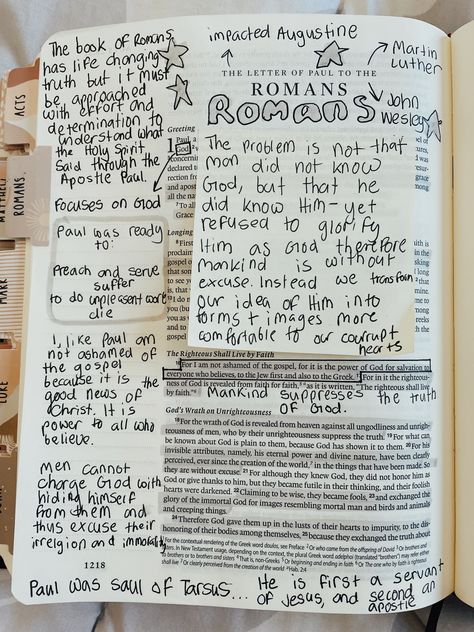 The book of Romans
has life changing
truth but it must
be approached
with effort and
determination to
understand what
the Holy Spirit
said through the
Apostle Paul.
Focuses on God
Paul was ready
to:
preach and serve
suffer
to do unpleasant work
die
I, like Paul am
not ashamed of
the gospel
because it is the
good news of
Christ. It is
power to all who
believe.
Men cannot
charge God with
hiding himself
from them and
thus excuse their
irreligion and immorality
impacted Augustine
Martin
Luther
John
Wesley
THE LETTER OF PAUL TO THE
ROMANS
ROMANS
Greeting
1 Paul,
God
The problem is not that
man did not know
God, but that he
did know Him - yet
refused to glorify
Him as God therefore
mankind is without
excuse. Instead we transform
our idea of Him into
forms + images more
comfortable to our courrupt
hearts
Longing
The Righteous Shall Live by Faith
16 For I am not ashamed of the gospel, for it is the power of God for salvation to
everyone who believes, to the Jew first and also to the Greek. 17 For in it the righteous-
ness of God is revealed from faith for faith, as it is written, "The righteous shall live
by faith."
Mankind suppresses the truth
of God.
God's Wrath on Unrighteousness
18 For the wrath of God is revealed from heaven against all ungodliness and unrigh-
teousness of men, who by their unrighteousness suppress the truth. 19 For what can
be known about God is plain to them, because God has shown it to them. 20 For his
invisible attributes, namely, his eternal power and divine nature, have been clearly
perceived, ever since the creation of the world, in the things that have been made. So
they are without excuse. 21 For although they knew God, they did not honor him as
God or give thanks to him, but they became futile in their thinking, and their foolish
hearts were darkened. 22 Claiming to be wise, they became fools, 23 and exchanged the
glory of the immortal God for images resembling mortal man and birds and animals
and creeping things.
24 Therefore God gave them up in the lusts of their hearts to impurity, to the dis-
honoring of their bodies among themselves, 25 because they exchanged the truth about
1218
Paul was saul of Tarsus... He is first a servant
of Jesus, and second an
apostle
ACTS
ROMANS
MARK
LUKE